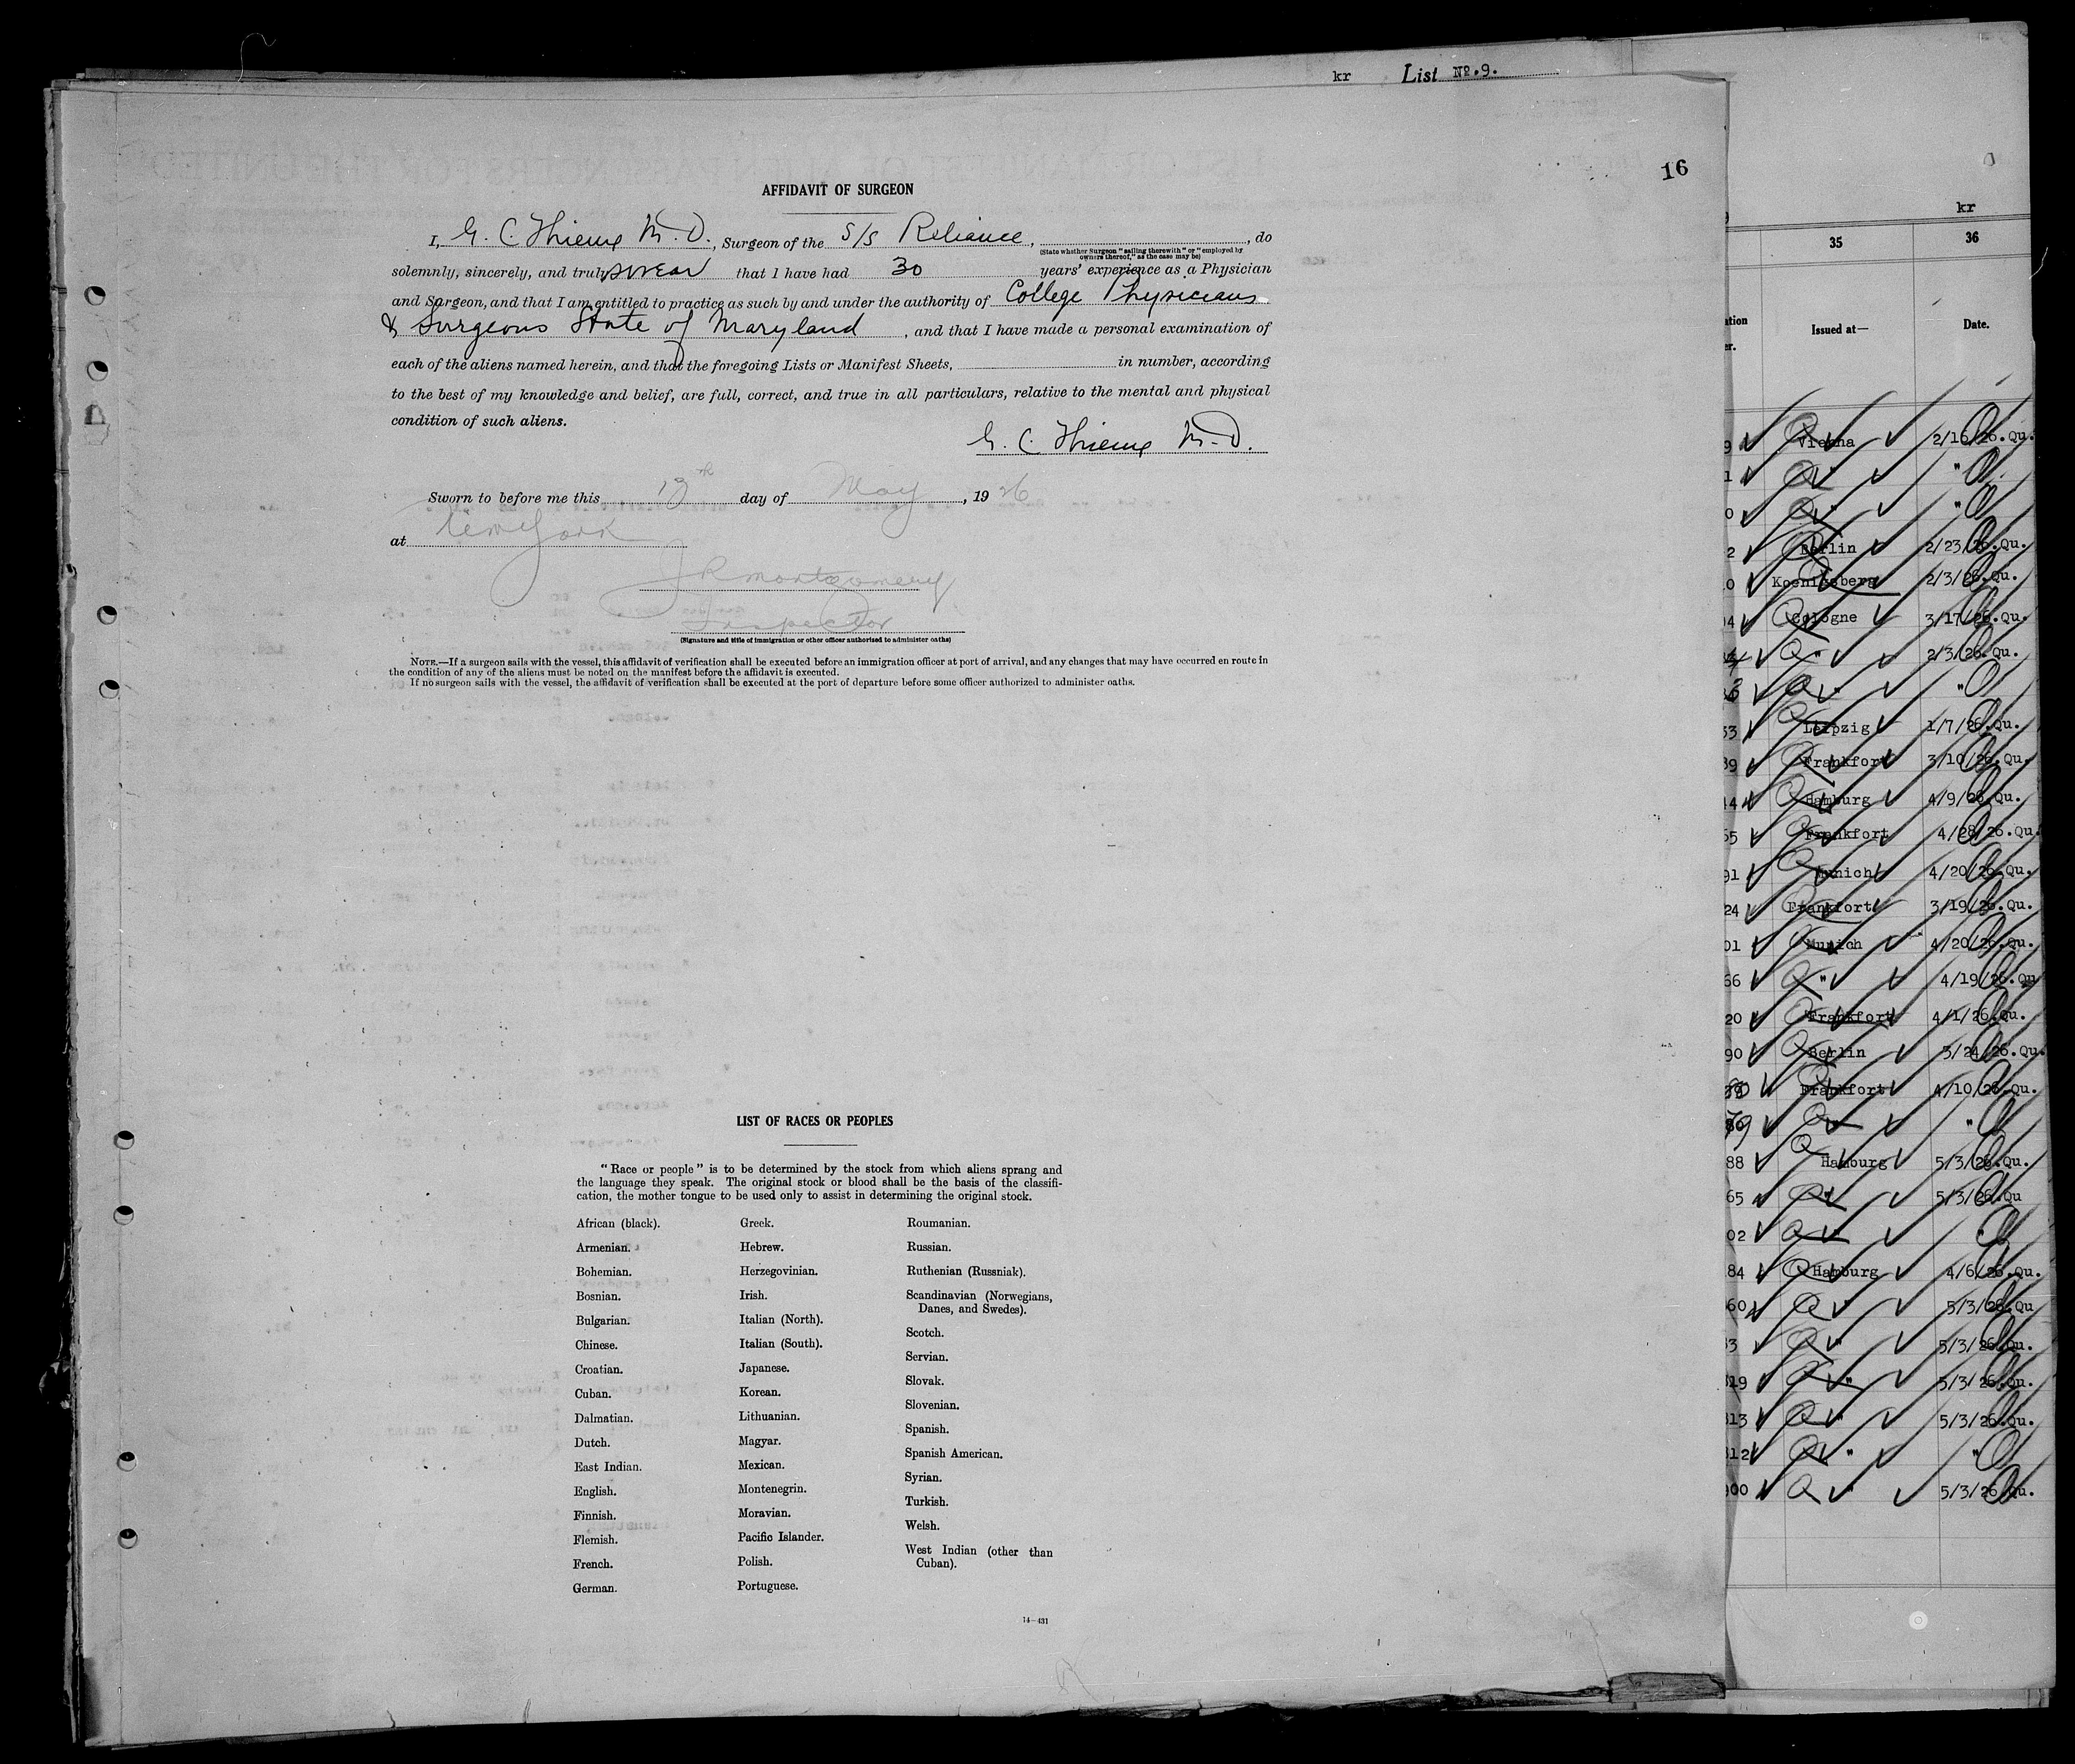 kr List No. 9.
16
AFFIDAVIT OF SURGEON
I, G. C. Thieme M.D., Surgeon of the S/S Reliance, , do
(State whether Surgeon "sailing therewith" or "employed by
owners thereof," as the case may be)
solemnly, sincerely, and truly swear that I have had 30 years' experience as a Physician
and Surgeon, and that I am entitled to practice as such by and under the authority of College Physicians
& Surgeons State of Maryland , and that I have made a personal examination of
each of the aliens named herein, and that the foregoing Lists or Manifest Sheets, in number, according
to the best of my knowledge and belief, are full, correct, and true in all particulars, relative to the mental and physical
condition of such aliens.
G. C. Thieme M.D.
Sworn to before me this 13th day of May, 1926
at New York
J R Montgomery
Inspector
(Signature and title of immigration or other officer authorized to administer oaths)
NOTE.—If a surgeon sails with the vessel, this affidavit of verification shall be executed before an immigration officer at port of arrival, and any changes that may have occurred en route in
the condition of any of the aliens must be noted on the manifest before the affidavit is executed.
If no surgeon sails with the vessel, the affidavit of verification shall be executed at the port of departure before some officer authorized to administer oaths.
LIST OF RACES OR PEOPLES
"Race or people" is to be determined by the stock from which aliens sprang and
the language they speak. The original stock or blood shall be the basis of the classifi-
cation, the mother tongue to be used only to assist in determining the original stock.
African (black).
Armenian.
Bohemian.
Bosnian.
Bulgarian.
Chinese.
Croatian.
Cuban.
Dalmatian.
Dutch.
East Indian.
English.
Finnish.
Flemish.
French.
German.
Greek.
Hebrew.
Herzegovinian.
Irish.
Italian (North).
Italian (South).
Japanese.
Korean.
Lithuanian.
Magyar.
Mexican.
Montenegrin.
Moravian.
Pacific Islander.
Polish.
Portuguese.
Roumanian.
Russian.
Ruthenian (Russniak).
Scandinavian (Norwegians,
Danes, and Swedes).
Scotch.
Servian.
Slovak.
Slovenian.
Spanish.
Spanish American.
Syrian.
Turkish.
Welsh.
West Indian (other than
Cuban).
14—431
kr
35 36
Issued at— Date.
Vienna 2/16/26.Qu.
" "
" "
Berlin 2/23/26.Qu.
Koenigsberg 2/3/26.Qu.
Cologne 3/17/26.Qu.
" 2/3/26.Qu.
" "
33 Leipzig 1/7/26.Qu.
39 Frankfort 3/10/26.Qu.
44 Hamburg 4/9/26.Qu.
55 Frankfort 4/28/26.Qu.
91 Munich 4/20/26.Qu.
24 Frankfort 3/19/26.Qu.
01 Munich 4/20/26.Qu.
66 " 4/19/26.Qu
20 Frankfort 4/1/26.Qu.
90 Berlin 3/24/26.Qu.
Frankfort 4/10/26.Qu.
" "
88 Hamburg 5/3/26.Qu.
65 " 5/3/26.Qu
02 " "
84 Hamburg 4/6/26.Qu.
60 " 5/3/26.Qu
3 " 5/3/26.Qu.
19 " 5/3/26.Qu.
313 " 5/3/26.Qu.
312 " "
900 " 5/3/26.Qu.